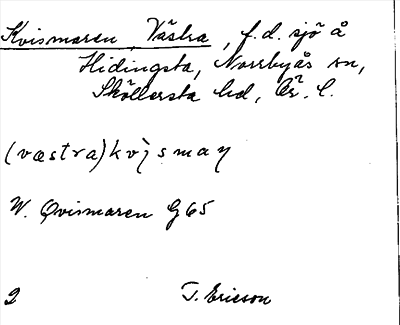 Kvismaren, Västra, f.d. sjö å
Hidingsta, Norrbyås sn,
Sköllersta hd, Ör. l.
(västra) kvìsmaη
W. Qvismaren G65
2 T. Ericson